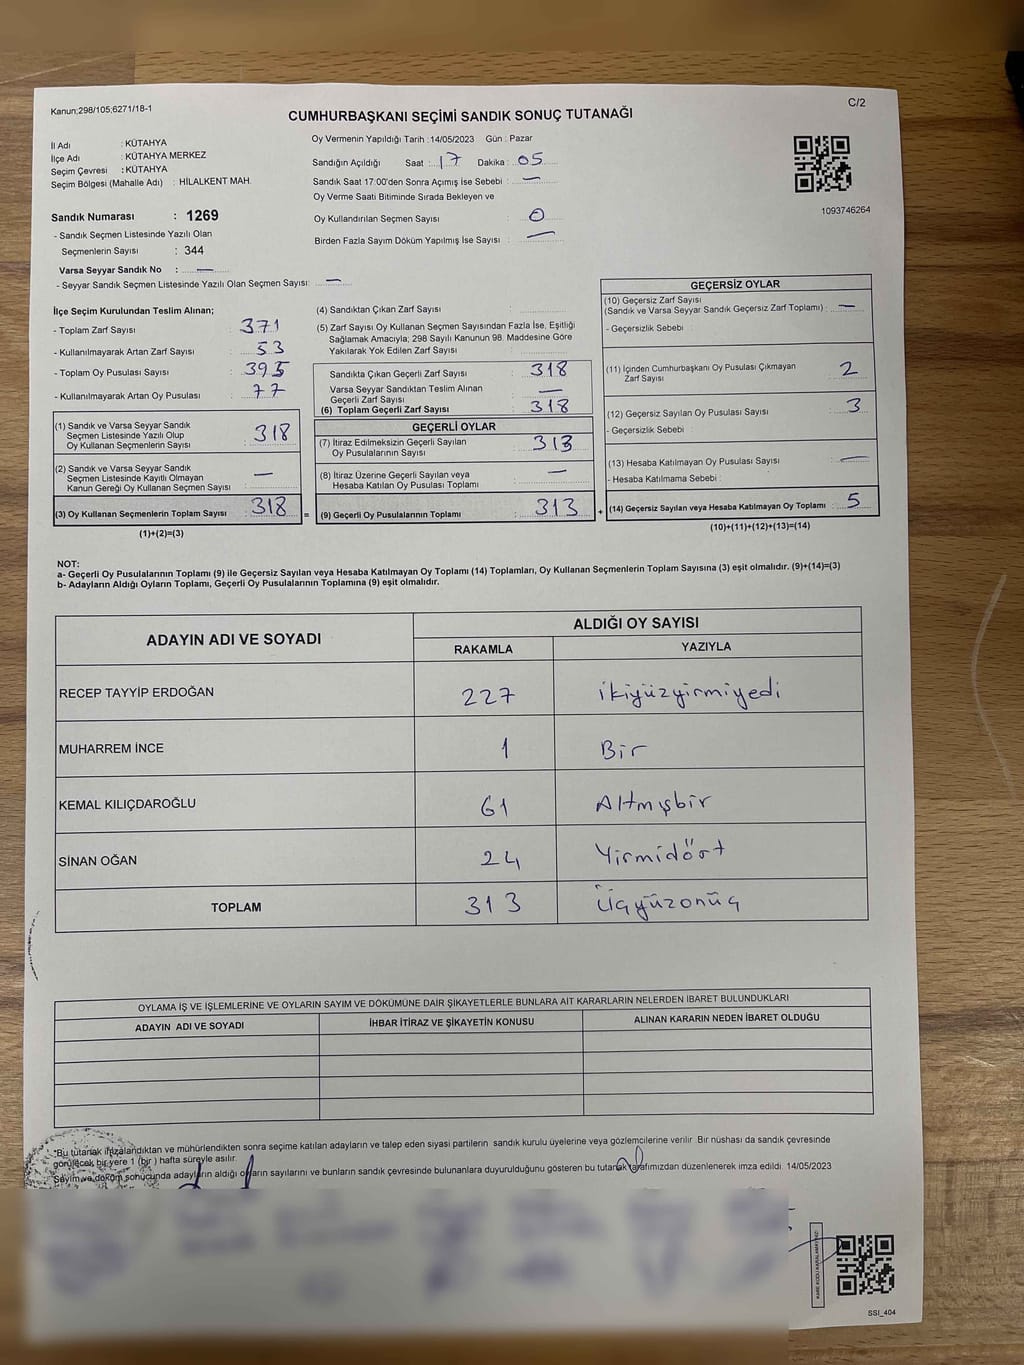 Kanun;298/105;6271/18-1
C/2
CUMHURBAŞKANI SEÇİMİ SANDIK SONUÇ TUTANAĞI
İl Adı : KÜTAHYA
İlçe Adı : KÜTAHYA MERKEZ
Seçim Çevresi : KÜTAHYA
Seçim Bölgesi (Mahalle Adı) : HİLALKENT MAH.
Sandık Numarası : 1269
- Sandık Seçmen Listesinde Yazılı Olan
Seçmenlerin Sayısı : 344
Varsa Seyyar Sandık No : —
- Seyyar Sandık Seçmen Listesinde Yazılı Olan Seçmen Sayısı: —
Oy Vermenin Yapıldığı Tarih : 14/05/2023 Gün : Pazar
Sandığın Açıldığı Saat : 17 Dakika : 05
Sandık Saat 17:00'den Sonra Açımış İse Sebebi : —
Oy Verme Saati Bitiminde Sırada Bekleyen ve
Oy Kullandırılan Seçmen Sayısı : 0
Birden Fazla Sayım Döküm Yapılmış İse Sayısı : —
1093746264
İlçe Seçim Kurulundan Teslim Alınan;
- Toplam Zarf Sayısı : 371
- Kullanılmayarak Artan Zarf Sayısı : 53
- Toplam Oy Pusulası Sayısı : 395
- Kullanılmayarak Artan Oy Pusulası : 77
(1) Sandık ve Varsa Seyyar Sandık
Seçmen Listesinde Yazılı Olup
Oy Kullanan Seçmenlerin Sayısı : 318
(2) Sandık ve Varsa Seyyar Sandık
Seçmen Listesinde Kayıtlı Olmayan
Kanun Gereği Oy Kullanan Seçmen Sayısı : —
(3) Oy Kullanan Seçmenlerin Toplam Sayısı : 318
(1)+(2)=(3)
(4) Sandıktan Çıkan Zarf Sayısı :
(5) Zarf Sayısı Oy Kullanan Seçmen Sayısından Fazla İse, Eşitliği
Sağlamak Amacıyla; 298 Sayılı Kanunun 98. Maddesine Göre
Yakılarak Yok Edilen Zarf Sayısı :
Sandıkta Çıkan Geçerli Zarf Sayısı : 318
Varsa Seyyar Sandıktan Teslim Alınan
Geçerli Zarf Sayısı : —
(6) Toplam Geçerli Zarf Sayısı : 318
GEÇERLİ OYLAR
(7) İtiraz Edilmeksizin Geçerli Sayılan
Oy Pusulalarının Sayısı : 313
(8) İtiraz Üzerine Geçerli Sayılan veya
Hesaba Katılan Oy Pusulası Toplamı : —
= (9) Geçerli Oy Pusulalarının Toplamı : 313
GEÇERSİZ OYLAR
(10) Geçersiz Zarf Sayısı
(Sandık ve Varsa Seyyar Sandık Geçersiz Zarf Toplamı) : —
- Geçersizlik Sebebi :
(11) İçinden Cumhurbaşkanı Oy Pusulası Çıkmayan
Zarf Sayısı : 2
(12) Geçersiz Sayılan Oy Pusulası Sayısı : 3
- Geçersizlik Sebebi :
(13) Hesaba Katılmayan Oy Pusulası Sayısı : —
- Hesaba Katılmama Sebebi :
+ (14) Geçersiz Sayılan veya Hesaba Katılmayan Oy Toplamı : 5
(10)+(11)+(12)+(13)=(14)
NOT:
a- Geçerli Oy Pusulalarının Toplamı (9) ile Geçersiz Sayılan veya Hesaba Katılmayan Oy Toplamı (14) Toplamları, Oy Kullanan Seçmenlerin Toplam Sayısına (3) eşit olmalıdır. (9)+(14)=(3)
b- Adayların Aldığı Oyların Toplamı, Geçerli Oy Pusulalarının Toplamına (9) eşit olmalıdır.
ADAYIN ADI VE SOYADI
ALDIĞI OY SAYISI
RAKAMLA YAZIYLA
RECEP TAYYİP ERDOĞAN 227 ikiyüzyirmiyedi
MUHARREM İNCE 1 Bir
KEMAL KILIÇDAROĞLU 61 Altmışbir
SİNAN OĞAN 24 Yirmidört
TOPLAM 313 Üçyüzonüç
OYLAMA İŞ VE İŞLEMLERİNE VE OYLARIN SAYIM VE DÖKÜMÜNE DAİR ŞİKAYETLERLE BUNLARA AİT KARARLARIN NELERDEN İBARET BULUNDUKLARI
ADAYIN ADI VE SOYADI İHBAR İTİRAZ VE ŞİKAYETİN KONUSU ALINAN KARARIN NEDEN İBARET OLDUĞU
*Bu tutanak imzalandıktan ve mühürlendikten sonra seçime katılan adayların ve talep eden siyasi partilerin sandık kurulu üyelerine veya gözlemcilerine verilir. Bir nüshası da sandık çevresinde
görülecek bir yere 1 (bir ) hafta süreyle asılır.
Sayım ve döküm sonucunda adayların aldığı oyların sayılarını ve bunların sandık çevresinde bulunanlara duyurulduğunu gösteren bu tutanak tarafımızdan düzenlenerek imza edildi. 14/05/2023
KARE KODU KARALAMAYINIZ
SSI_404